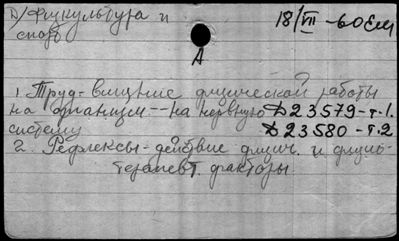 Д/Физкультура и
спорт
18/VII - 60 Ем
А
1. Труд - влияние физической работы
на организм - - на нервную Д23579-т.1.
систему Д23580-т.2
2. Рефлексы - действие физич. и физио-
терапевт. факторы